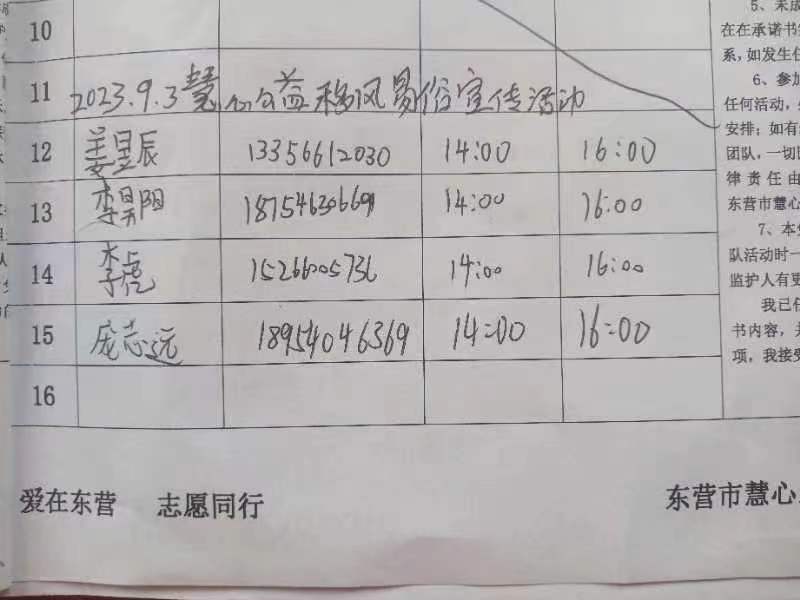 10
11 2023.9.3慧心公益移风易俗宣传活动
12 姜昱辰 13356612030 14:00 16:00
13 李昊阳 18754630669 14:00 16:00
14 李虎 15266005736 14:00 16:00
15 庞志远 18954046369 14:00 16:00
16
5、未成
在在承诺书
系,如发生任
6、参加
任何活动,
安排;如有
团队,一切
律责任由
东营市慧心
7、本
队活动时一
监护人有更
我已任
书内容,并
项,我接受
爱在东营 志愿同行
东营市慧心